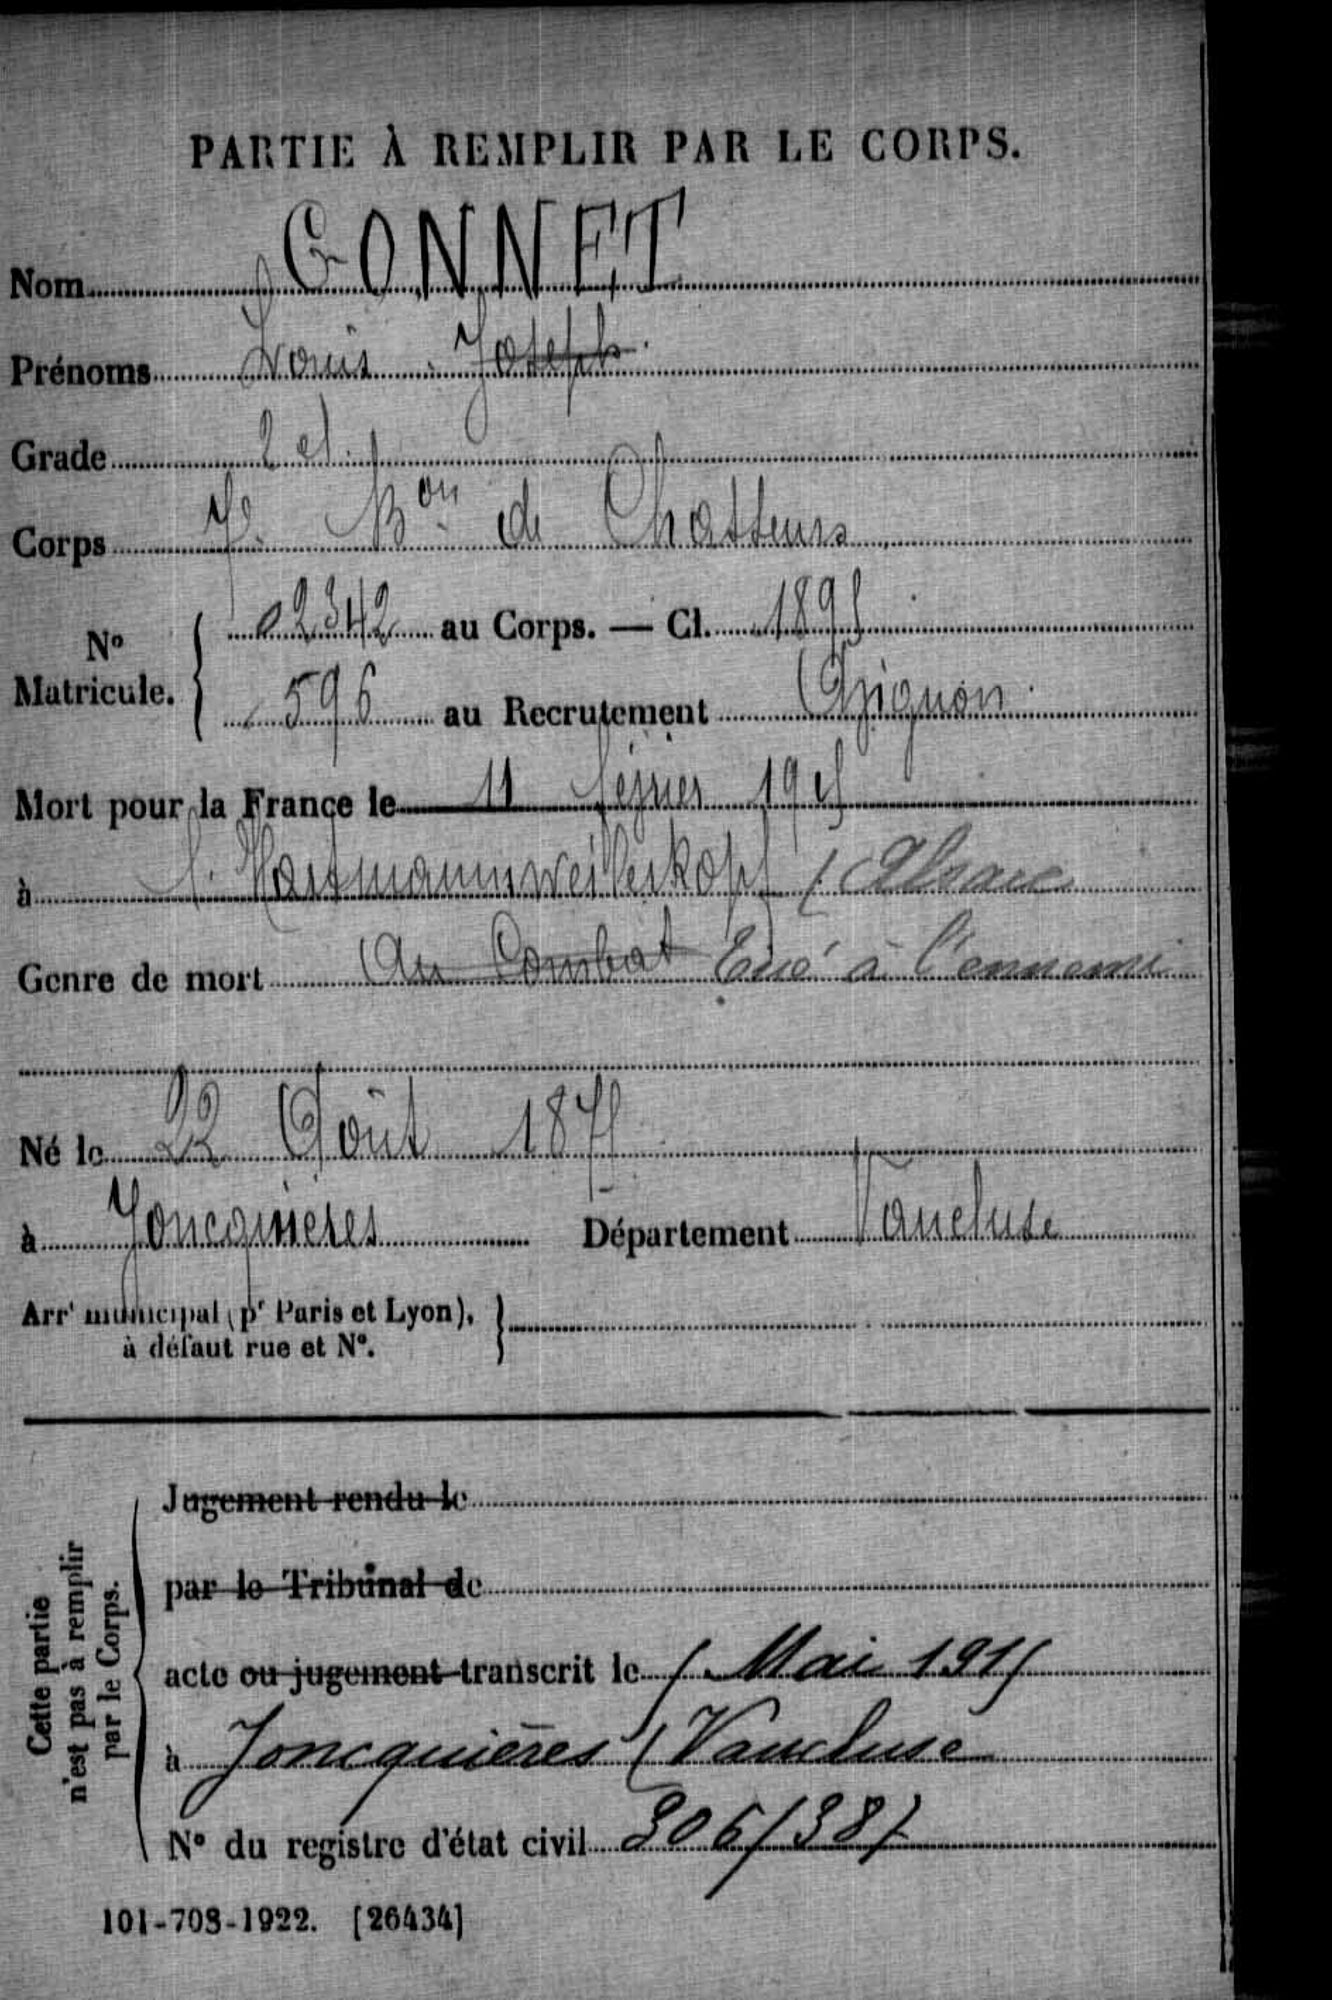 PARTIE À REMPLIR PAR LE CORPS.
Nom GONNET
Prénoms Louis Joseph
Grade 2 cl.
Corps 7e Bon de Chasseurs
No Matricule. 02342 au Corps. — Cl. 1895
596 au Recrutement Avignon
Mort pour la France le 11 février 1915
à l'Hartmannweillerkopf (Alsace
Genre de mort Au Combat Tué à l'ennemi
Né le 22 Août 1875
à Joncquières Département Vaucluse
Arrt municipal (pr Paris et Lyon),
à défaut rue et No.
Cette partie
n'est pas à remplir
par le Corps.
Jugement rendu le
par le Tribunal de
acte ou jugement transcrit le 5 Mai 1915
à Joncquières (Vaucluse
No du registre d'état civil 306/387
101-708-1922. [26434]